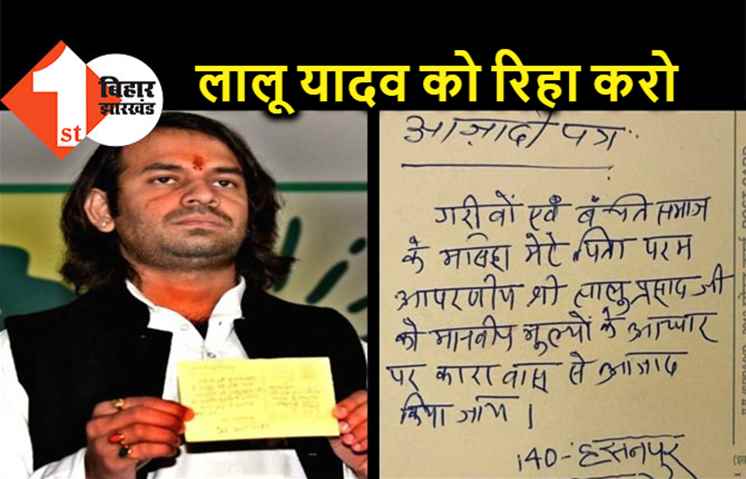 1st
बिहार
झारखंड
लालू यादव को रिहा करो
आज़ादी पत्र :
गरीवों एवं बंन्चित समाज
के मसिहा मेरे पिता परम
आदरणीय श्री लालू प्रसाद जी
को मानवीय मूल्यों के आधार
पर कारावास से आजाद
किया जाय।
140-हसनपुर